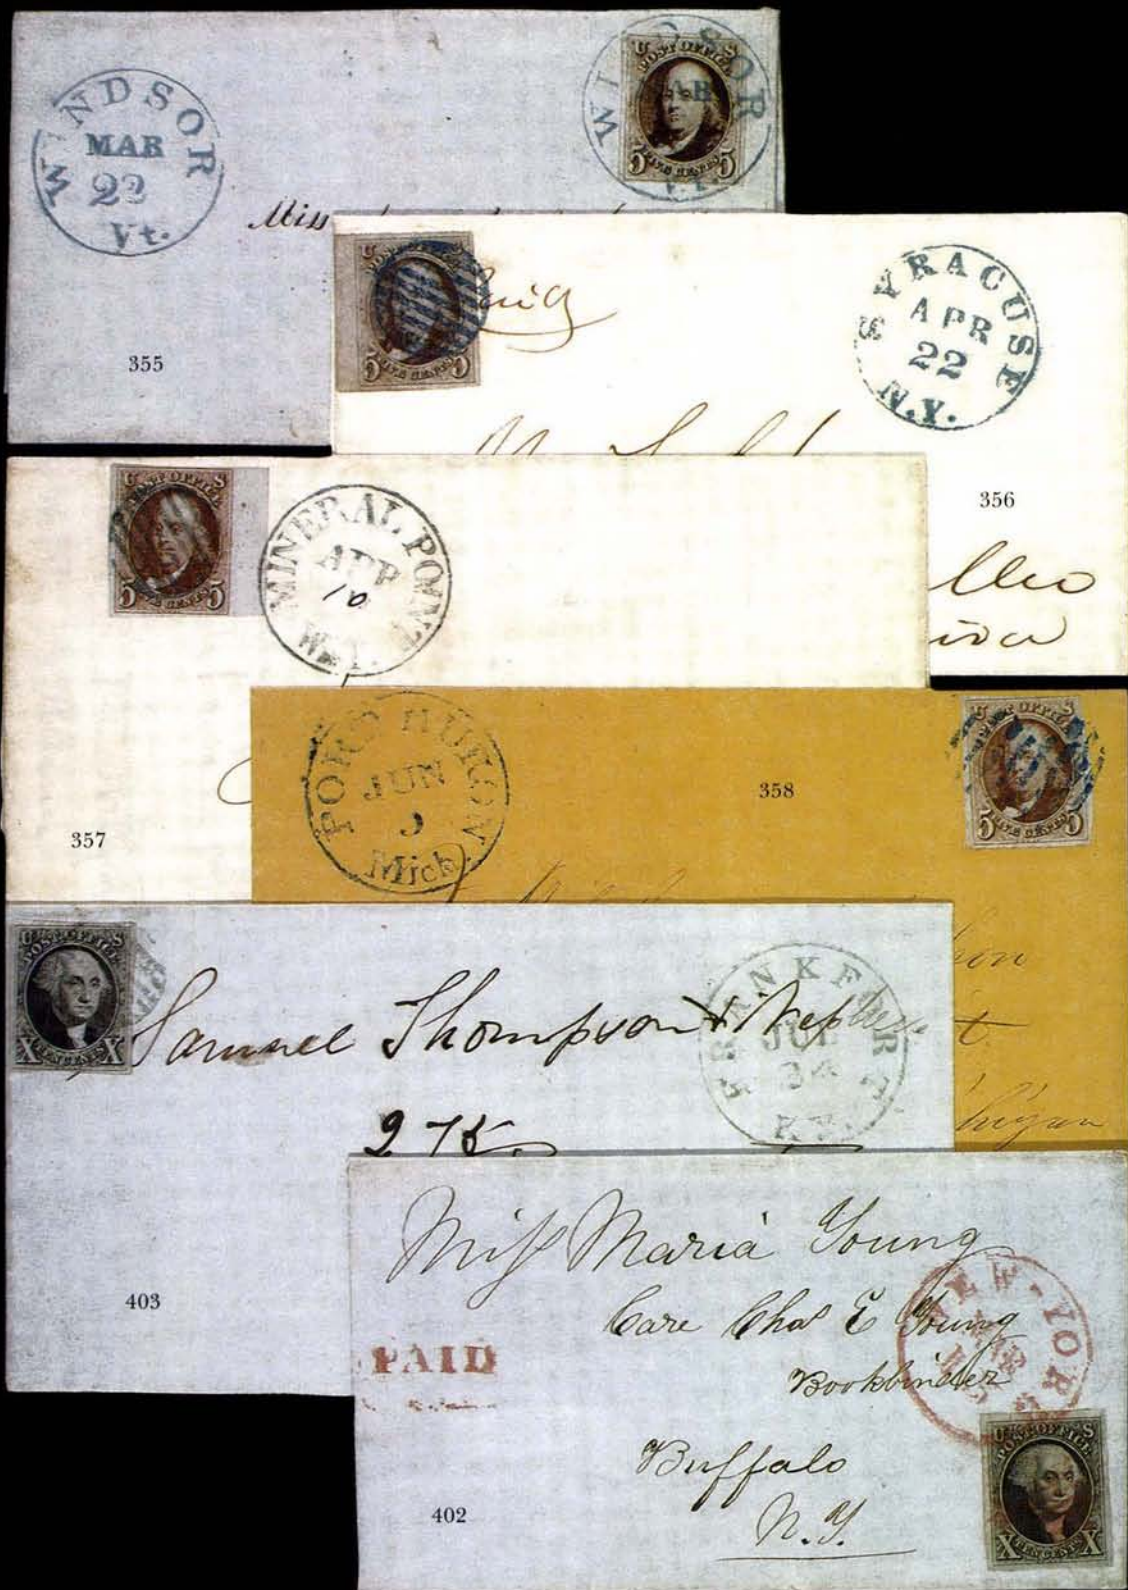 WINDSOR
MAR
22
Vt.
WINDSOR
MAR
Vt.
U S
POST OFFICE
5 FIVE CENTS 5
Miss
355
U S
POST OFFICE
5 FIVE CENTS 5
SYRACUSE
APR
22
N.Y.
356
U S
POST OFFICE
5 FIVE CENTS 5
MINERAL POINT
APR
10
357
PORT HURON
JUN
Mich
358
U S
POST OFFICE
5 FIVE CENTS 5
U S
POST OFFICE
X TEN CENTS X
Samuel Thompson & Nephew
FRANKFORT
JUL
24
KY.
275
403
Miss Maria Young
Care Chas E Young
Bookbinder
Buffalo
N.Y.
PAID
NEW-YORK
MAR
U S
POST OFFICE
X TEN CENTS X
402